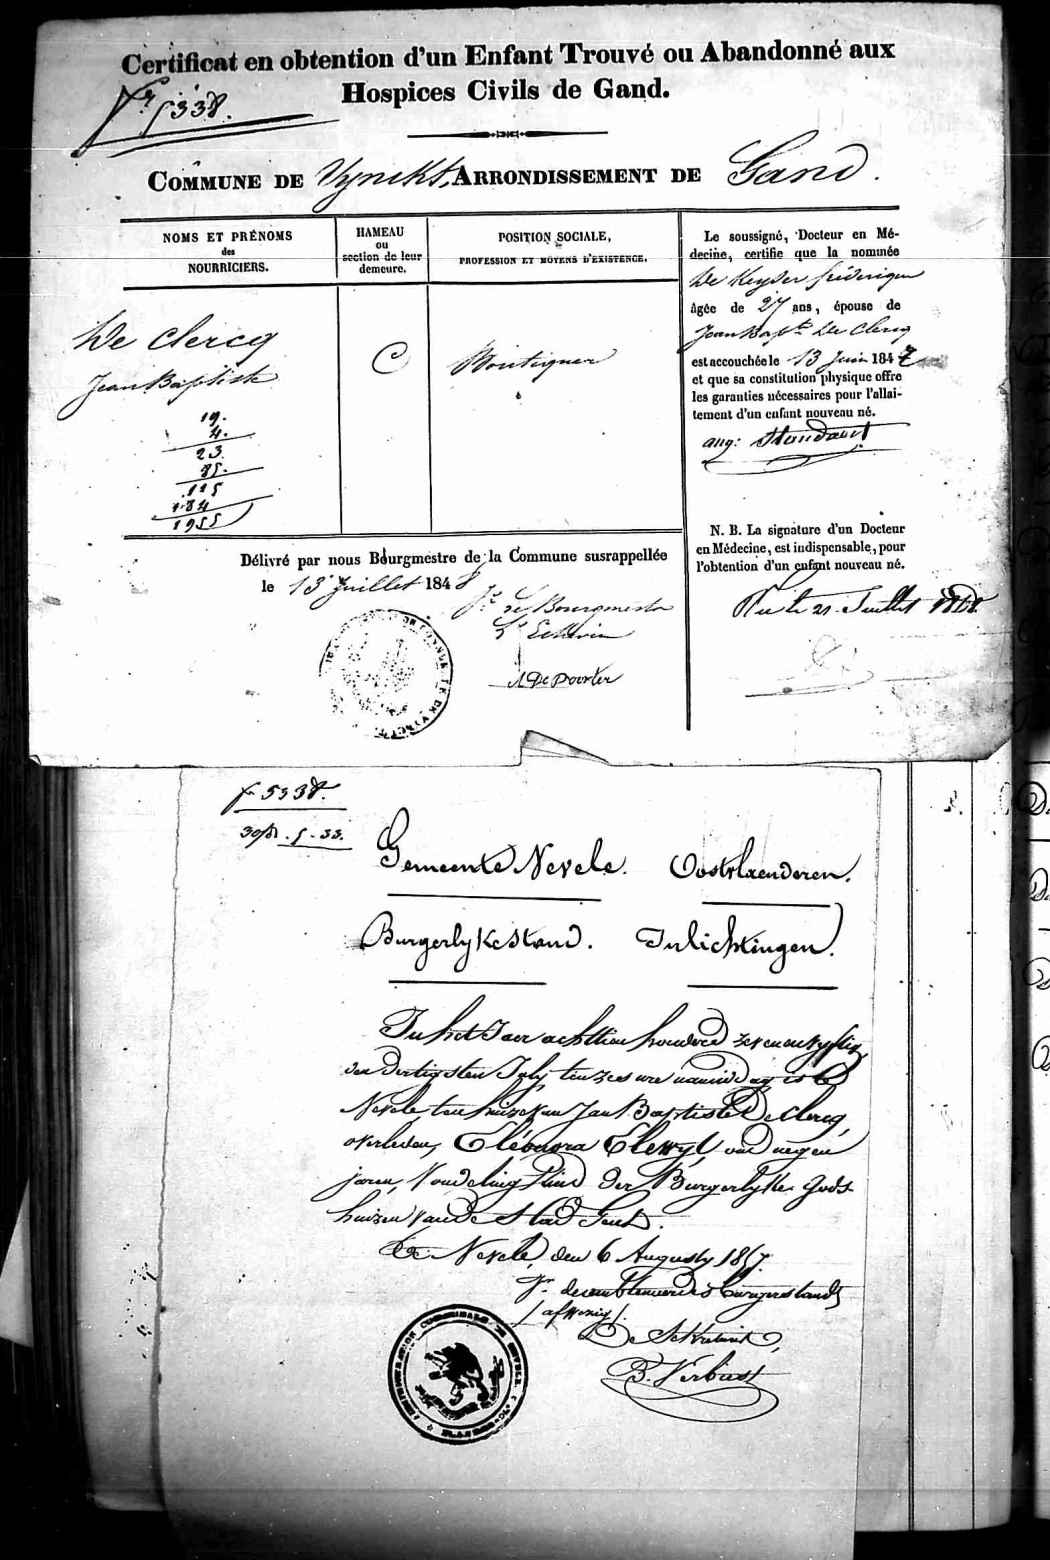 Certificat en obtention d'un Enfant Trouvé ou Abandonné aux
Hospices Civils de Gand.
5338.
COMMUNE DE Vynckt, ARRONDISSEMENT DE Gand.
NOMS ET PRÉNOMS
des
NOURRICIERS.
HAMEAU
ou
section de leur
demeure.
POSITION SOCIALE,
PROFESSION ET MOYENS D'EXISTENCE.
De Clercq
Jean Baptiste
C
Boutiquer
19.
4.
23.
85.
1955
Le soussigné, Docteur en Mé-
decine, certifie que la nommée
De Keyser fréderique
âgée de 27 ans, épouse de
Jean Bapte De Clercq
est accouchée le 13 Juin 1847
et que sa constitution physique offre
les garanties nécessaires pour l'allai-
tement d'un enfant nouveau né.
aug: Standaert
N. B. La signature d'un Docteur
en Médecine, est indispensable, pour
l'obtention d'un enfant nouveau né.
Vu le 21 Juillet 1848
Délivré par nous Bourgmestre de la Commune susrappellée
le 13 Juillet 1848
Le Bourgmestre
L'Echevin
A De Poorter
5338.
Gemeente Nevele. Oostvlaenderen.
Burgerlyke Stand. Inlichtingen.
In het Jaer achttien honderd zevenenvyftig
den dertigsten July, ten zes ure namiddag is te
Nevele ten huize van Jan Baptiste De Clercq,
overleden, Eléonora Elewyt, oud negen
jaren, Vondeling kind der Burgerlyke Gods-
huizen van de Stad Gent.
Nevele, den 6 Augusty 1857.
den ambtenaer des burgerstands
/afwezig/
De Sekretaris,
B. Verbiest